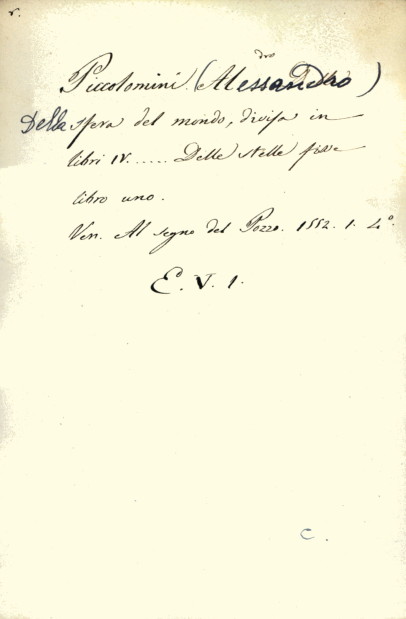 r.
dro
Piccolomini (Alessandro)
Della sfera del mondo, divisa in
libri IV...... Delle stelle fisse
libro uno.
Ven. Al segno del Pozzo. 1552. 1. 4°.
E. V. 1.
C.